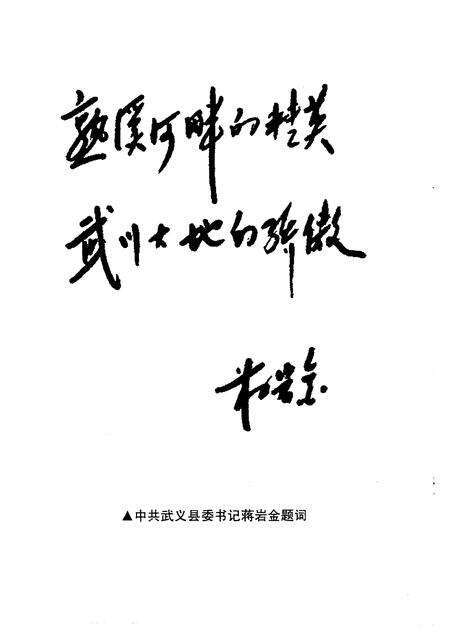 熟溪河畔的精英
武川大地的骄傲
▲中共武义县委书记蒋岩金题词